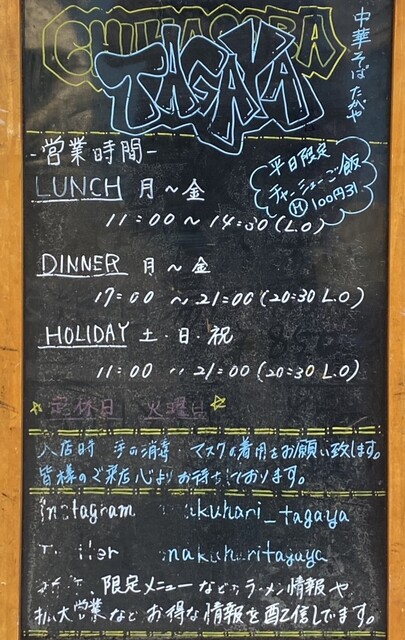 CHUKASOBA
TAGAYA
中華そば たかや
-営業時間-
平日限定
チャーシューご飯
100円引
LUNCH 月～金
11:00～14:30(L.O)
DINNER 月～金
17:00～21:00(20:30 L.O)
HOLIDAY 土・日・祝
11:00～21:00(20:30 L.O)
定休日 火曜日
入店時 手の消毒・マスクの着用をお願い致します。
皆様のご来店心よりお待ちしております。
Instagram akuhari_tagaya
nakuharitagaya
限定メニューなどのラーメン情報や
拡大営業などお得な情報を配信してます。